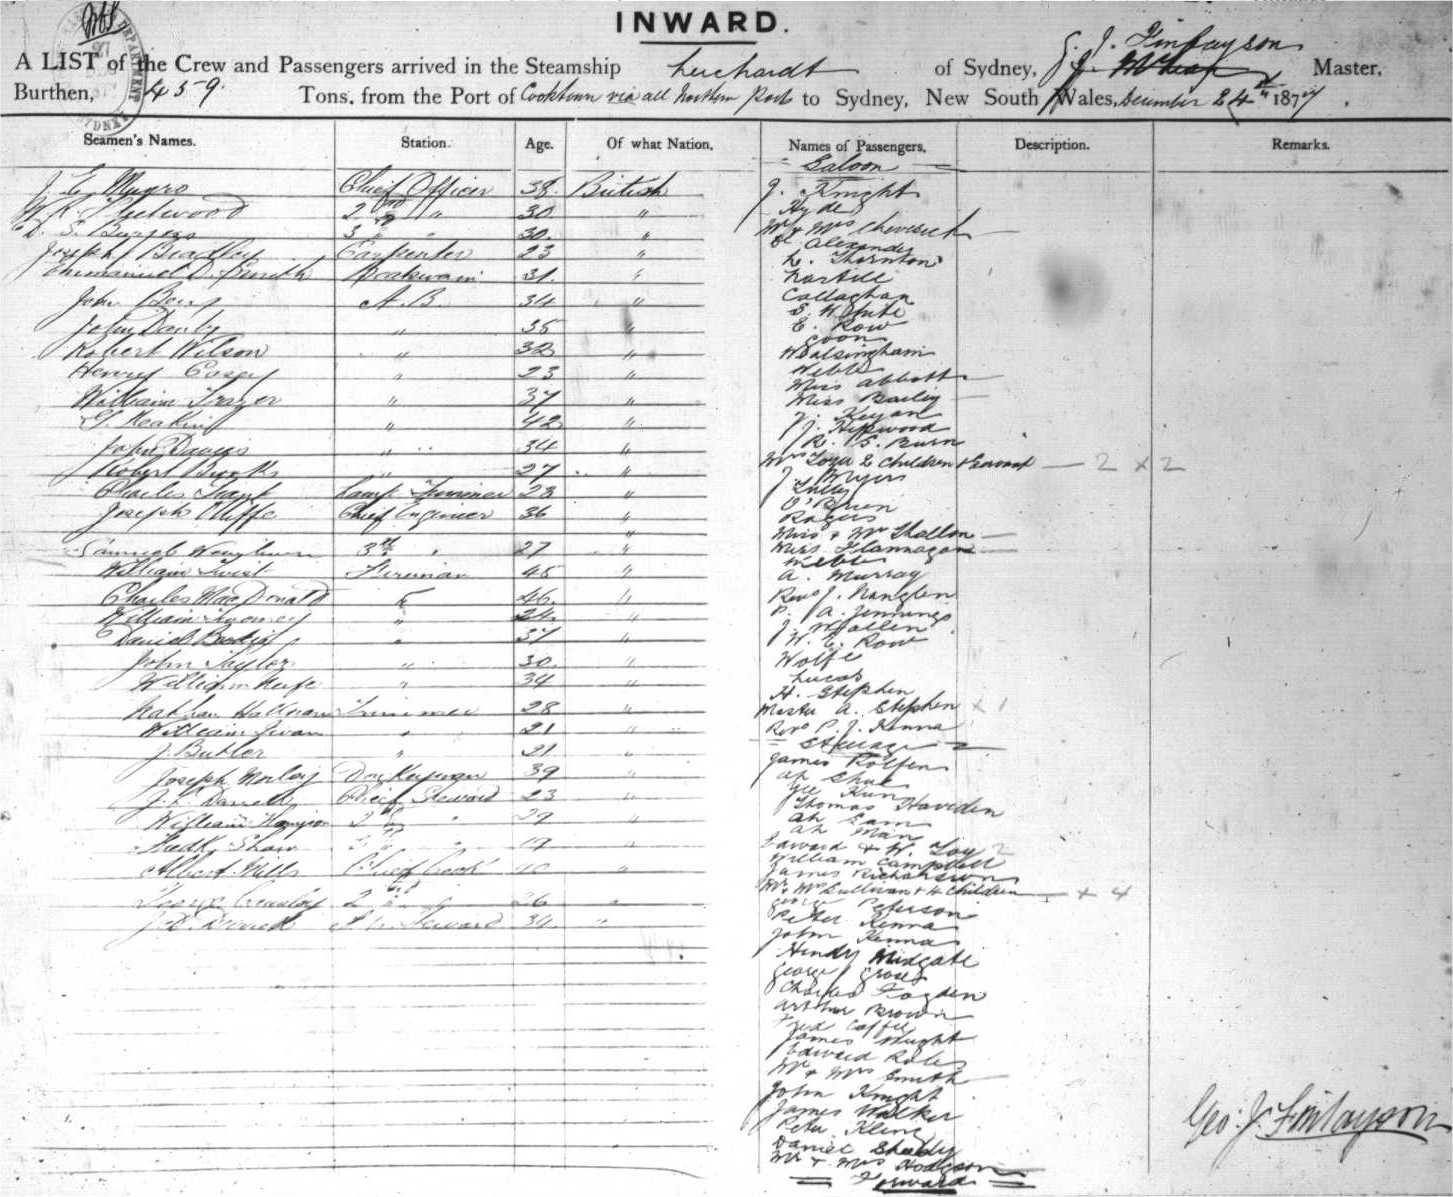 INWARD.
A LIST of the Crew and Passengers arrived in the Steamship Leichardt of Sydney, G. J. Finlayson Master,
Burthen, 459 Tons, from the Port of Cooktown via all Northern Ports to Sydney, New South Wales, December 24th 1877.
Seamen's Names. Station. Age. Of what Nation. Names of Passengers. Description. Remarks.
Saloon
J. E. Munro Chief Officer 38 British J. Knight
W. R. Fleetwood 2nd " 30 " Hyde
S. Burgess 3rd " 30 " Mr & Mrs
Joseph Bradley Carpenter 23 " Alexander
Emmanuel D. Smith Boatswain 31 " L. Thornton
John A.B. 34 " Hartill
Callaghan
John Danby " 35 " S. White
E. Row
Robert Wilson " 32 " Coon
Walsingham
Henry Casey " 23 " Webb
Miss Abbott
William Frazer " 37 " Miss Bailey
J. Keyan
G. Meakin " 42 " J. Hopwood
R. S. Burn
John Davies " 34 " Mrs 2 Children & Servant 2 x 2
Robert Brooks " 27 " J. Myers
Charles Lamp Trimmer 28 " Tully
O'Brien
Joseph Cliffe Chief Engineer 36 " Rogers
Miss & Mr Shallon
Samuel 3rd " 27 " Miss Flannagan
Webb
William Twist Fireman 45 " A. Murray
Charles MacDonald " 46 " Revd J. Nanglen
William Twomey " 24 " P. A. Jennings
Daniel " 37 " J. McCallen
W. E. Row
John Taylor " 30 " Wolfe
William Keefe " 34 " Lucas
H. Stephen
Nathan Trimmer 28 " Master A. Stephen x 1
William Swan " 21 " Revd P. J. Kenna
Steerage
J. Butler " 21 " James Rolfen
Joseph Morley Donkeyman 39 " Ah Shue
J. L. Darrell Chief Steward 23 " Gee Kun
Thomas Hawden
William 2nd " 29 " Ah Sam
Ah Man
Fredk Shaw 3rd " 19 " Edward & W. Toy 2
William Campbell
Albert Mills Chief Cook 40 " James Richardson
Mr & Mrs Sullivan & 4 Children + 4
George 2nd " 26 " George Peterson
J. D. Steward 34 " Peter Kenna
John Kenna
Hendy Midgate
George Groses
Charles Fogden
Arthur Brown
Fred Coffee
James Wright
Edward Roles
Mr & Mrs Smith
John Knight
James Walker
Peter Kling
Daniel Sheedy
Mr & Mrs Hodgson
Forward
Geo: J. Finlayson